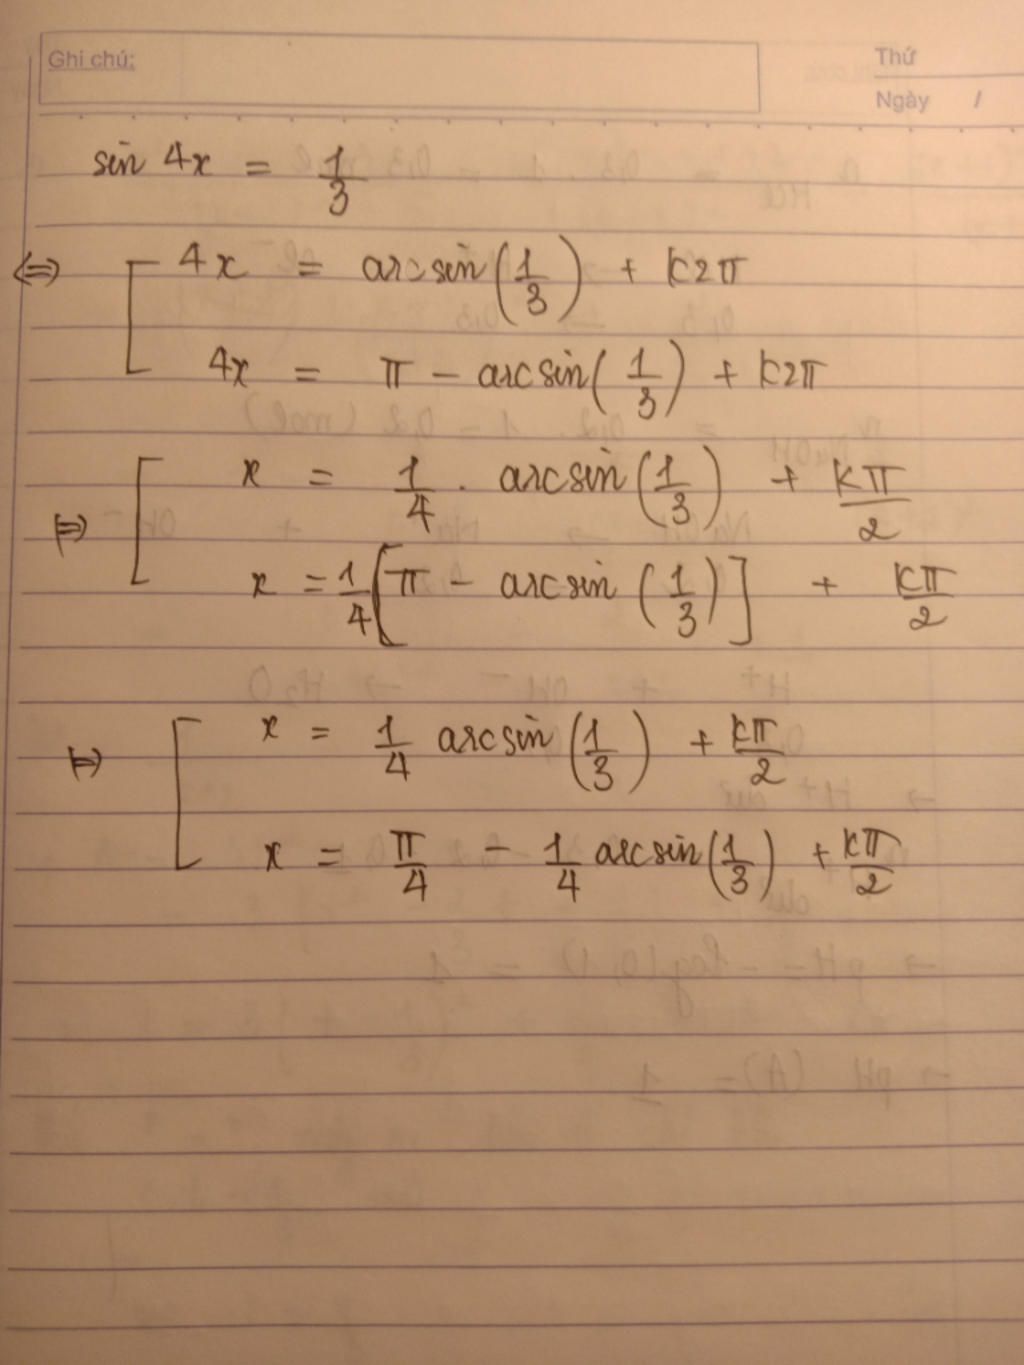 Ghi chú:
Thứ
Ngày /
sin 4x = 1/3
⇔ [ 4x = arcsin(1/3) + k2π
4x = π - arcsin(1/3) + k2π
⇔ [ x = 1/4 . arcsin(1/3) + kπ/2
x = 1/4 [π - arcsin(1/3)] + kπ/2
⇔ [ x = 1/4 arcsin(1/3) + kπ/2
x = π/4 - 1/4 arcsin(1/3) + kπ/2